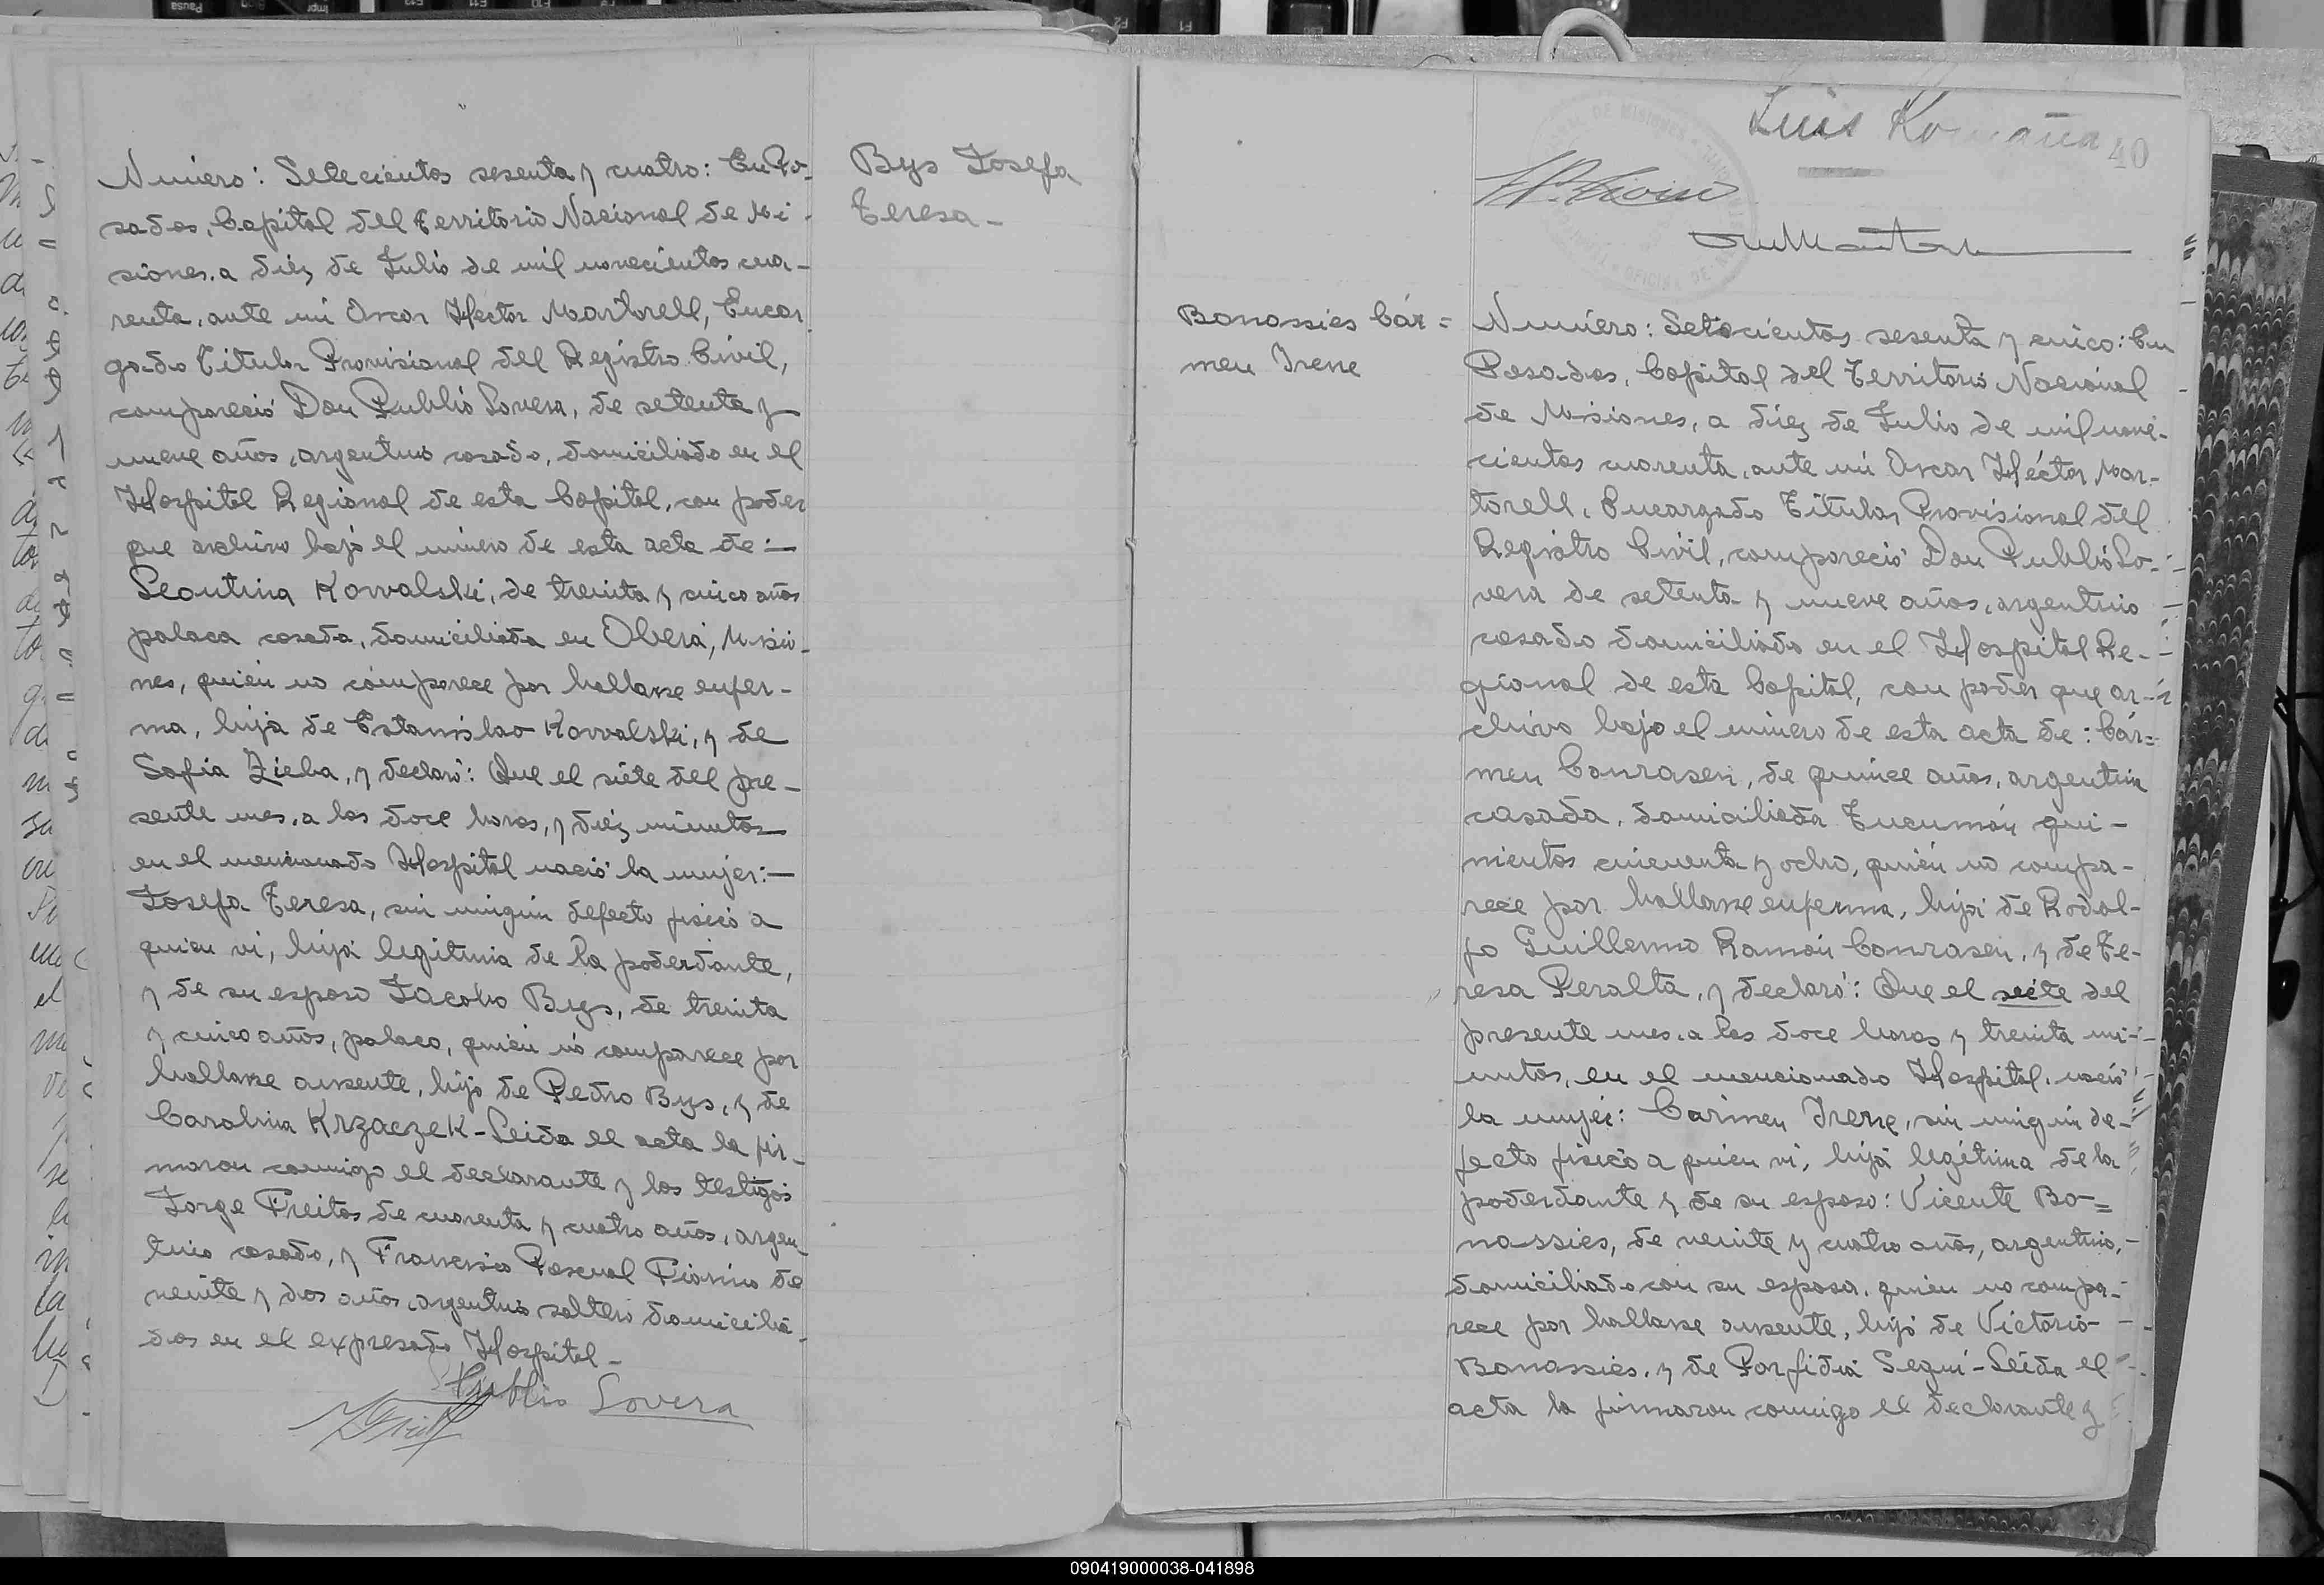 Número: Setecientos sesenta y cuatro: En Po-
sadas, Capital del Territorio Nacional de Mi-
siones, a diéz de Julio de mil novecientos cua-
renta, ante mi Oscar Hector Martorell, Encar
gado Titular Provisional del Registro Civil,
compareció Don Publio Lovera, de setenta y
nueve años, argentino casado, domiciliado en el
Hospital Regional de esta Capital, con poder
que archivo bajo el número de esta acta de:—
Leontina Kowalski, de treinta y cinco años
polaca casada, domiciliada en Oberá, Misio-
nes, quién no cómparece por hallarse enfer-
ma, hija de Estanislao Kowalski, y de
Sofia Zieba, y declaró: Que el siéte del pre-
sente mes, a las doce horas, y diéz minutos
en el mencionado Hospital nació la mujer:—
Josefa Teresa, sin ningún defecto fisico a
quien vi, hija legitima de la poderdante,
y de su esposo Jacobo Bys, de treinta
y cinco años, polaco, quién nó comparece por
hallarse ausente, hijo de Pedro Bys, y de
Carolina Krzaczek-Leida el acta la fir-
maron conmigo el declarante y los testigos
Jorge Freitas de cuarenta y cuatro años, argen-
tino casado, y Francisco Pascual Fiorino de
veinte y dos años argentino soltero domicilia-
dos en el expresado Hospital-
Publio Lovera
Bys Josefa
Teresa-
Luis Romaña
40
Bonassies Cár=
men Irene
Número: Setecientos sesenta y cinco: En
Posadas, Capital del Territorio Nacional
de Misiones, a diéz de Julio de mil nove-
cientos cuarenta, ante mi Oscar Héctor Mar-
torell, Encargado Titular Provisional del
Registro Civil, compareció Don Publio Lo-
vera de setenta y nueve años, argentino
casado domiciliado en el Hospital Re-
gional de esta Capital, con poder que ar-
chivo bajo el número de esta acta de: Cár=
men Conrasen, de quince años, argentina
casada, domiciliada Tucumán qui-
nientos cincuenta y ocho, quién no compa-
rece por hallarse enferma, hija de Rodol-
fo Guillermo Ramón Conrasen, y de Te-
resa Peralta, y declaró: Que el siéte del
presente mes, a las doce horas y treinta mi-
nutos, en el mencionado Hospital, nació
la mujer: Carmen Irene, sin ningún de-
fecto fisico a quien vi, hija legitima de la
poderdante y de su esposo: Vicente Bo=
nassies, de veinte y cuatro años, argentino,
domiciliado con su esposa, quien no compa-
rece por hallarse ausente, hijo de Victorio
Bonassies, y de Porfidia Segui-Leida el
acta la firmaron conmigo el declarante y
090419000038-041898